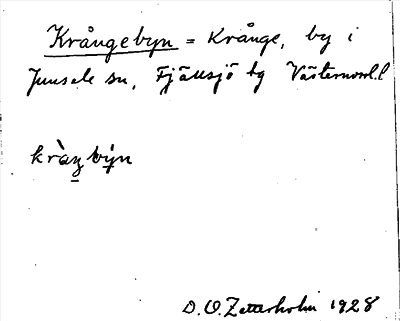 Krångebyn = Krånge, by i
Junsele sn, Fjällsjö tg Västernorrl. l
kràŋ býn
D. O. Zetterholm 1928